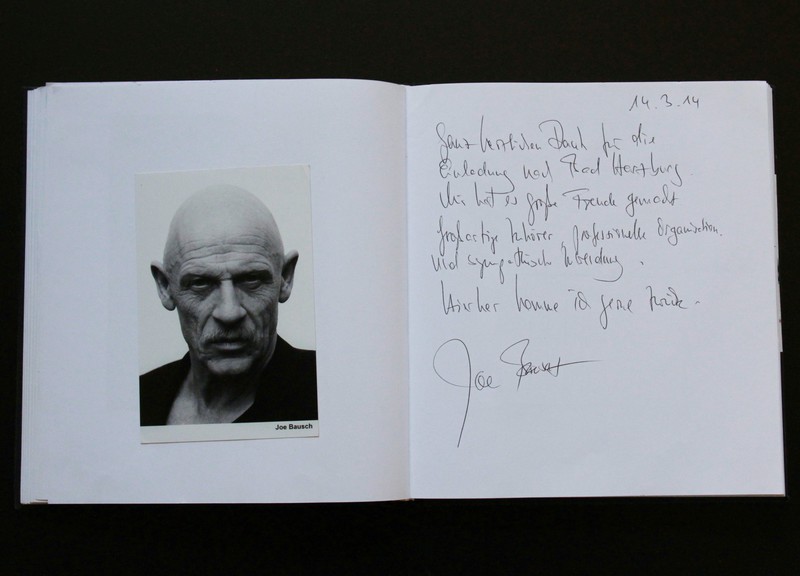 Joe Bausch
14.3.14
Ganz herzlichen Dank für die
Einladung nach Bad Harzburg.
Mir hat es große Freude gemacht
Großartige Zuhörer, professionelle Organisation.
und sympathische
Hierher komme ich gerne zurück.
Joe Bausch